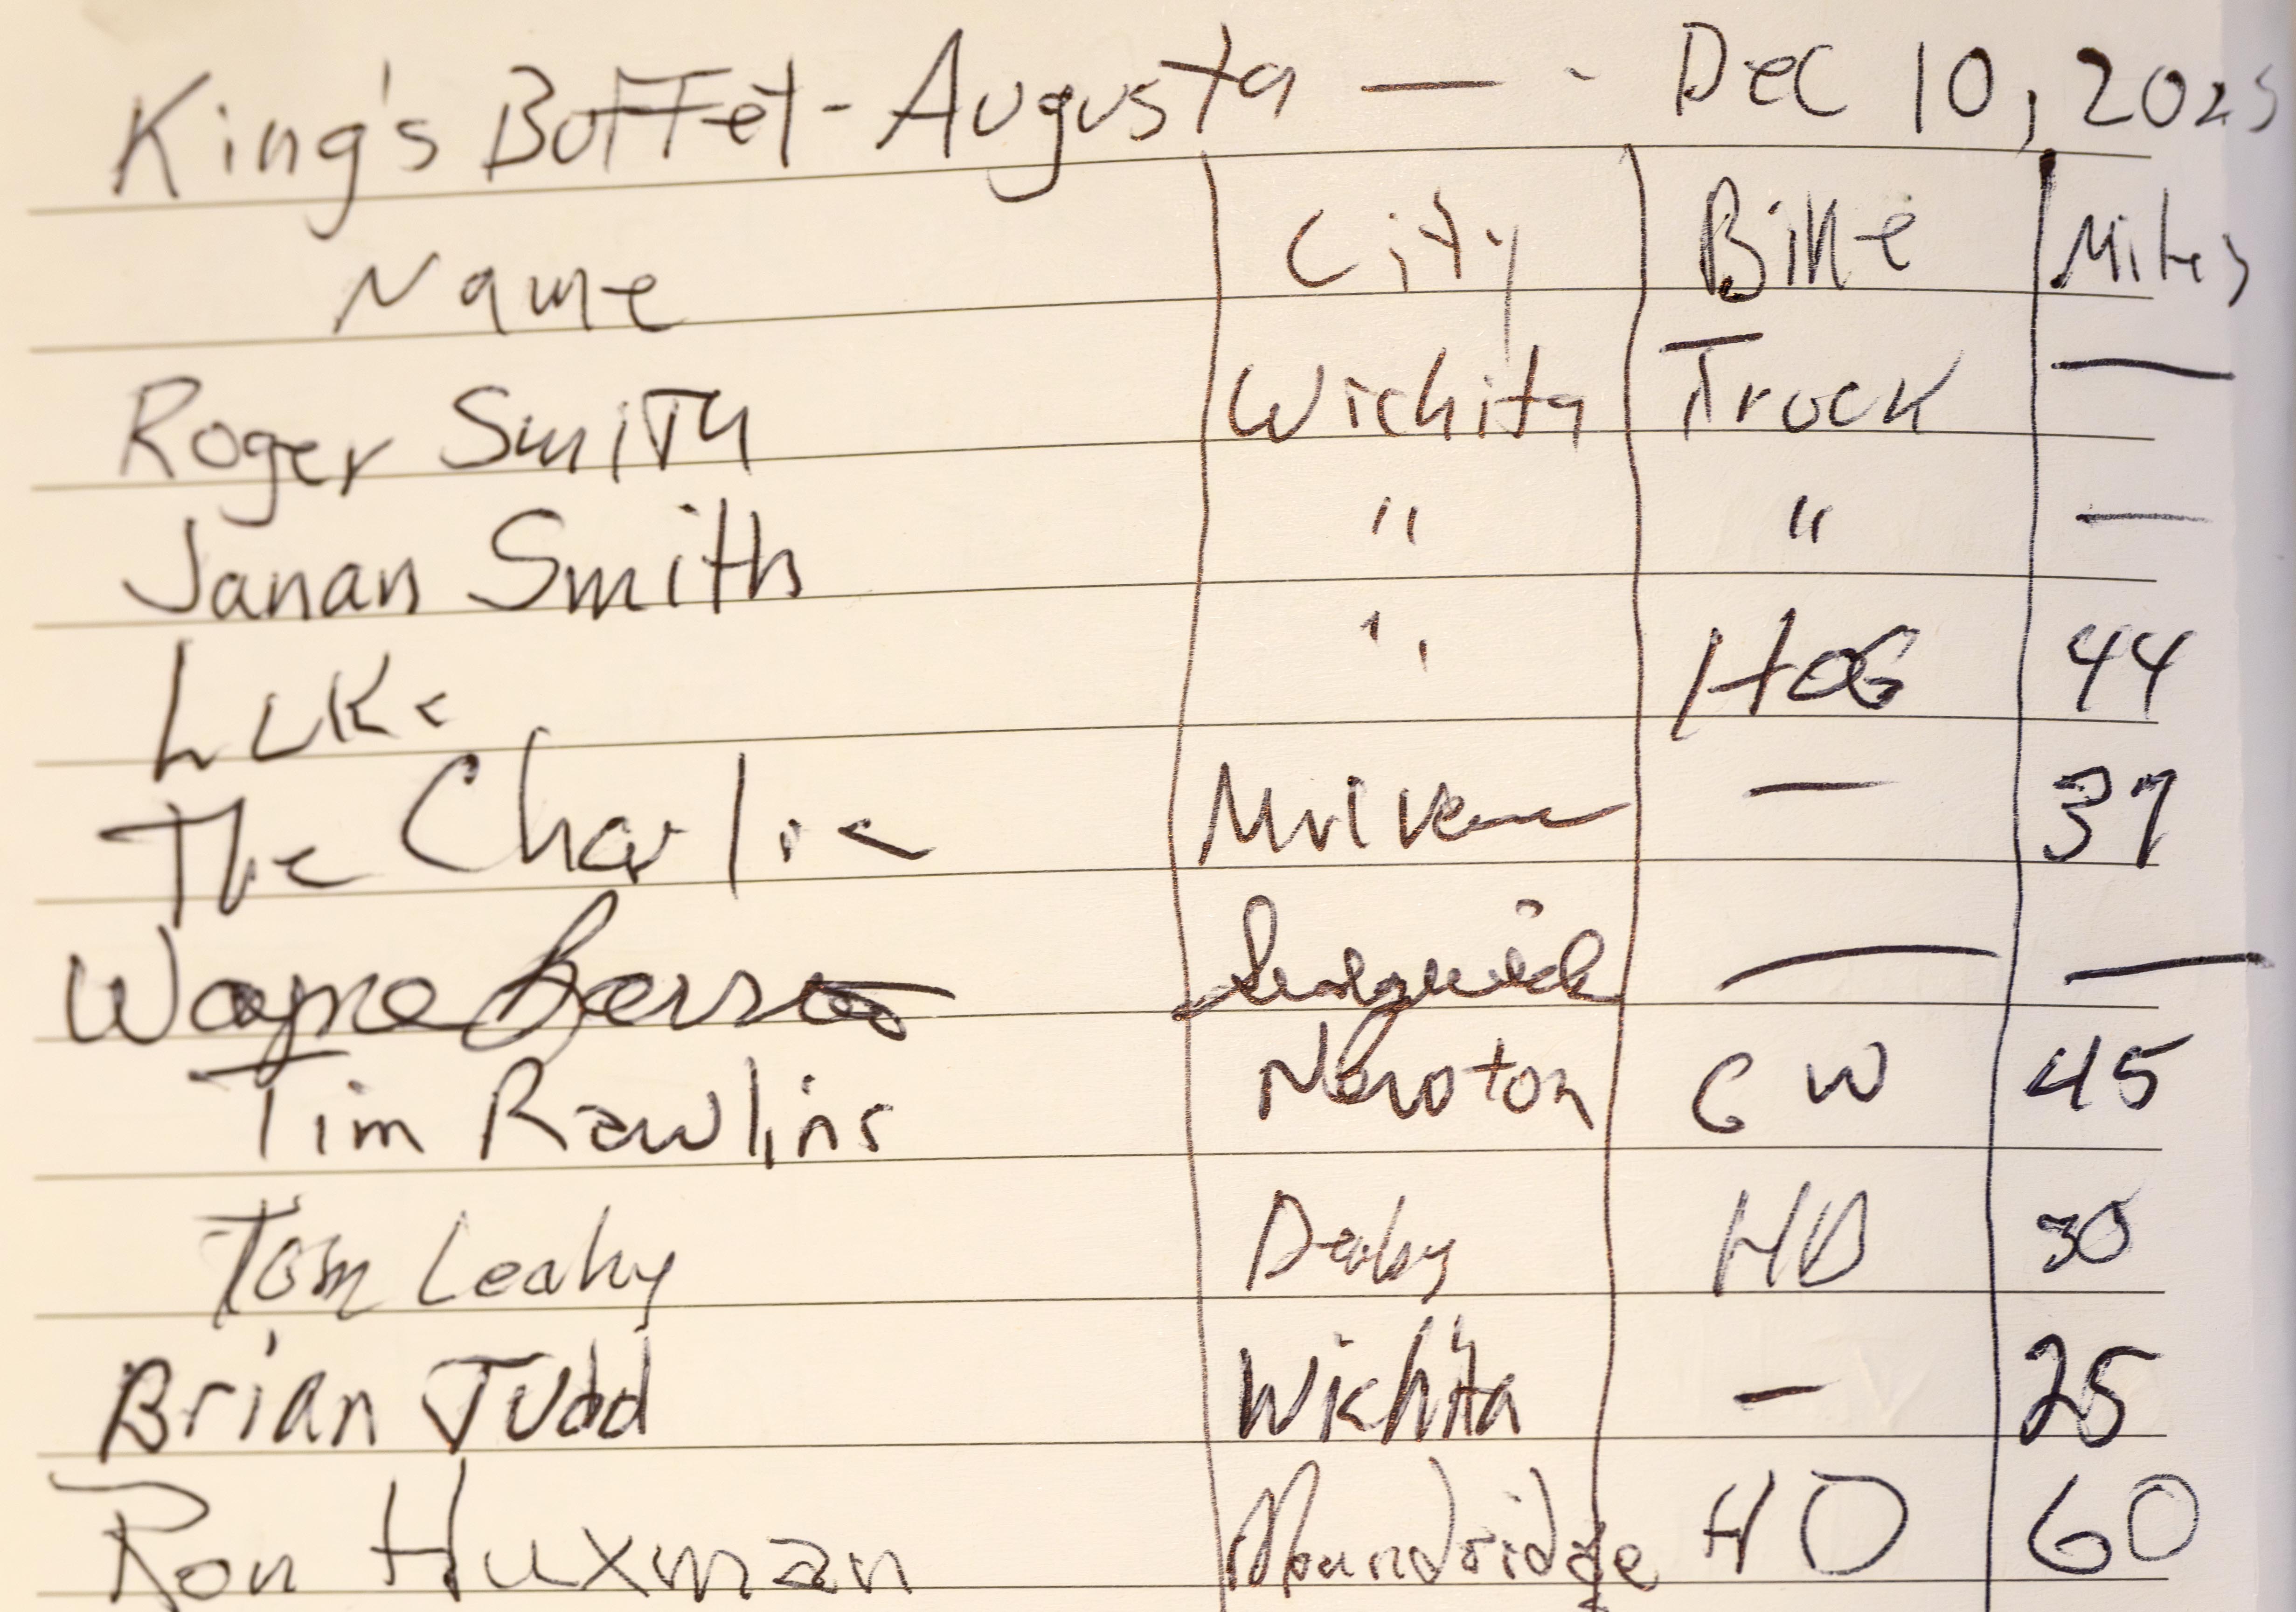 King's Buffet - Augusta — - Dec 10, 2025
Name City Bike Miles
Roger Smith Wichita Truck —
Janan Smith " " —
Luke " HOG 44
The Charlie Mulvane — 37
Wayne — —
Tim Rawlins Newton GW 45
Tom Leahy Derby HD 30
Brian Judd Wichita — 25
Ron Huxman Moundridge HD 60